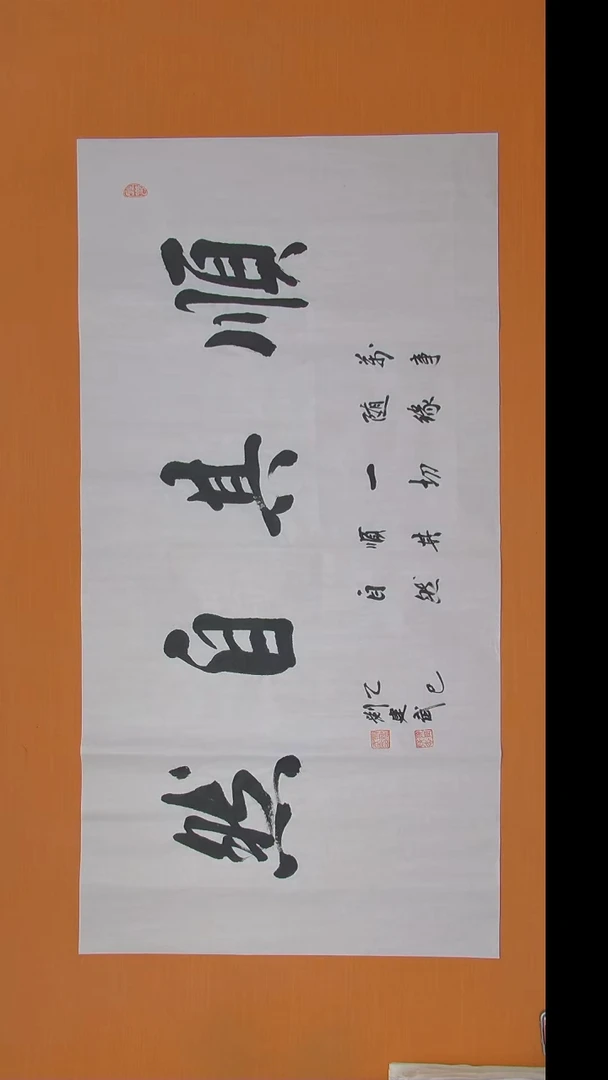 順其自然
萬事
随緣
一切
順其
自然
乙巳
劉建武